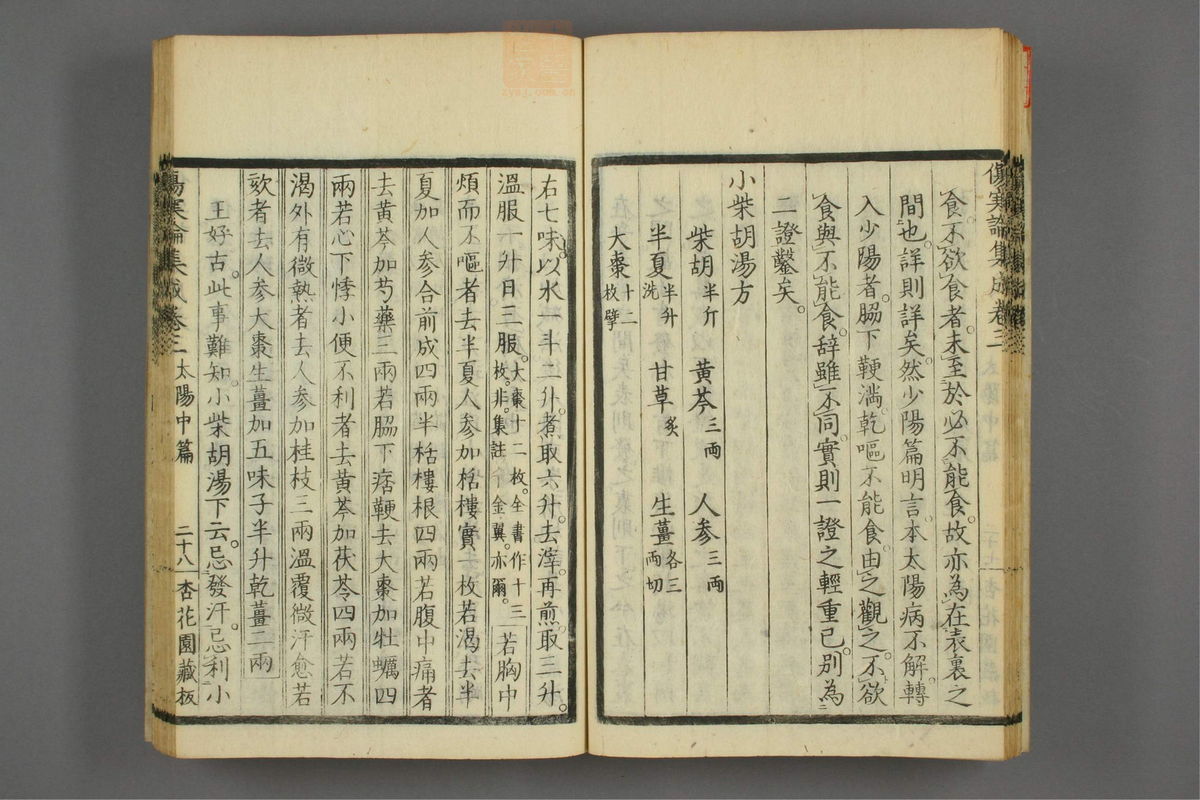 傷寒論集成卷三
食。不欲食者。未至於必不能食。故亦為在表裏之
間也。詳則詳矣。然少陽篇明言。本太陽病不解。轉
入少陽者。脇下鞕滿。乾嘔不能食。由之觀之。不欲
食與不能食。辞雖不同。實則一證之輕重已。別為
二證鑿矣。
小柴胡湯方
柴胡半斤 黃芩三兩 人參三兩
半夏半升洗 甘草炙 生薑各三兩切
大棗十二枚擘
右七味。以水一斗二升。煮取六升。去滓。再煎。取三升。
溫服一升日三服。大棗十二枚。全書作十三枚。非。集註千金翼。亦爾。若胸中
煩而不嘔者去半夏人參加栝樓實一枚若渴去半
夏加人參合前成四兩半栝樓根四兩若腹中痛者
去黃芩加芍藥三兩若脇下痞鞕去大棗加牡蠣四
兩若心下悸小便不利者去黃芩加茯苓四兩若不
渴外有微熱者去人參加桂枝三兩溫覆微汗愈若
欬者去人參大棗生薑加五味子半升乾薑二兩
王好古。此事難知。小柴胡湯下云。忌發汗。忌利小
傷寒論集成卷三 太陽中篇 二十八 杏花園藏板
zysj.com.cn